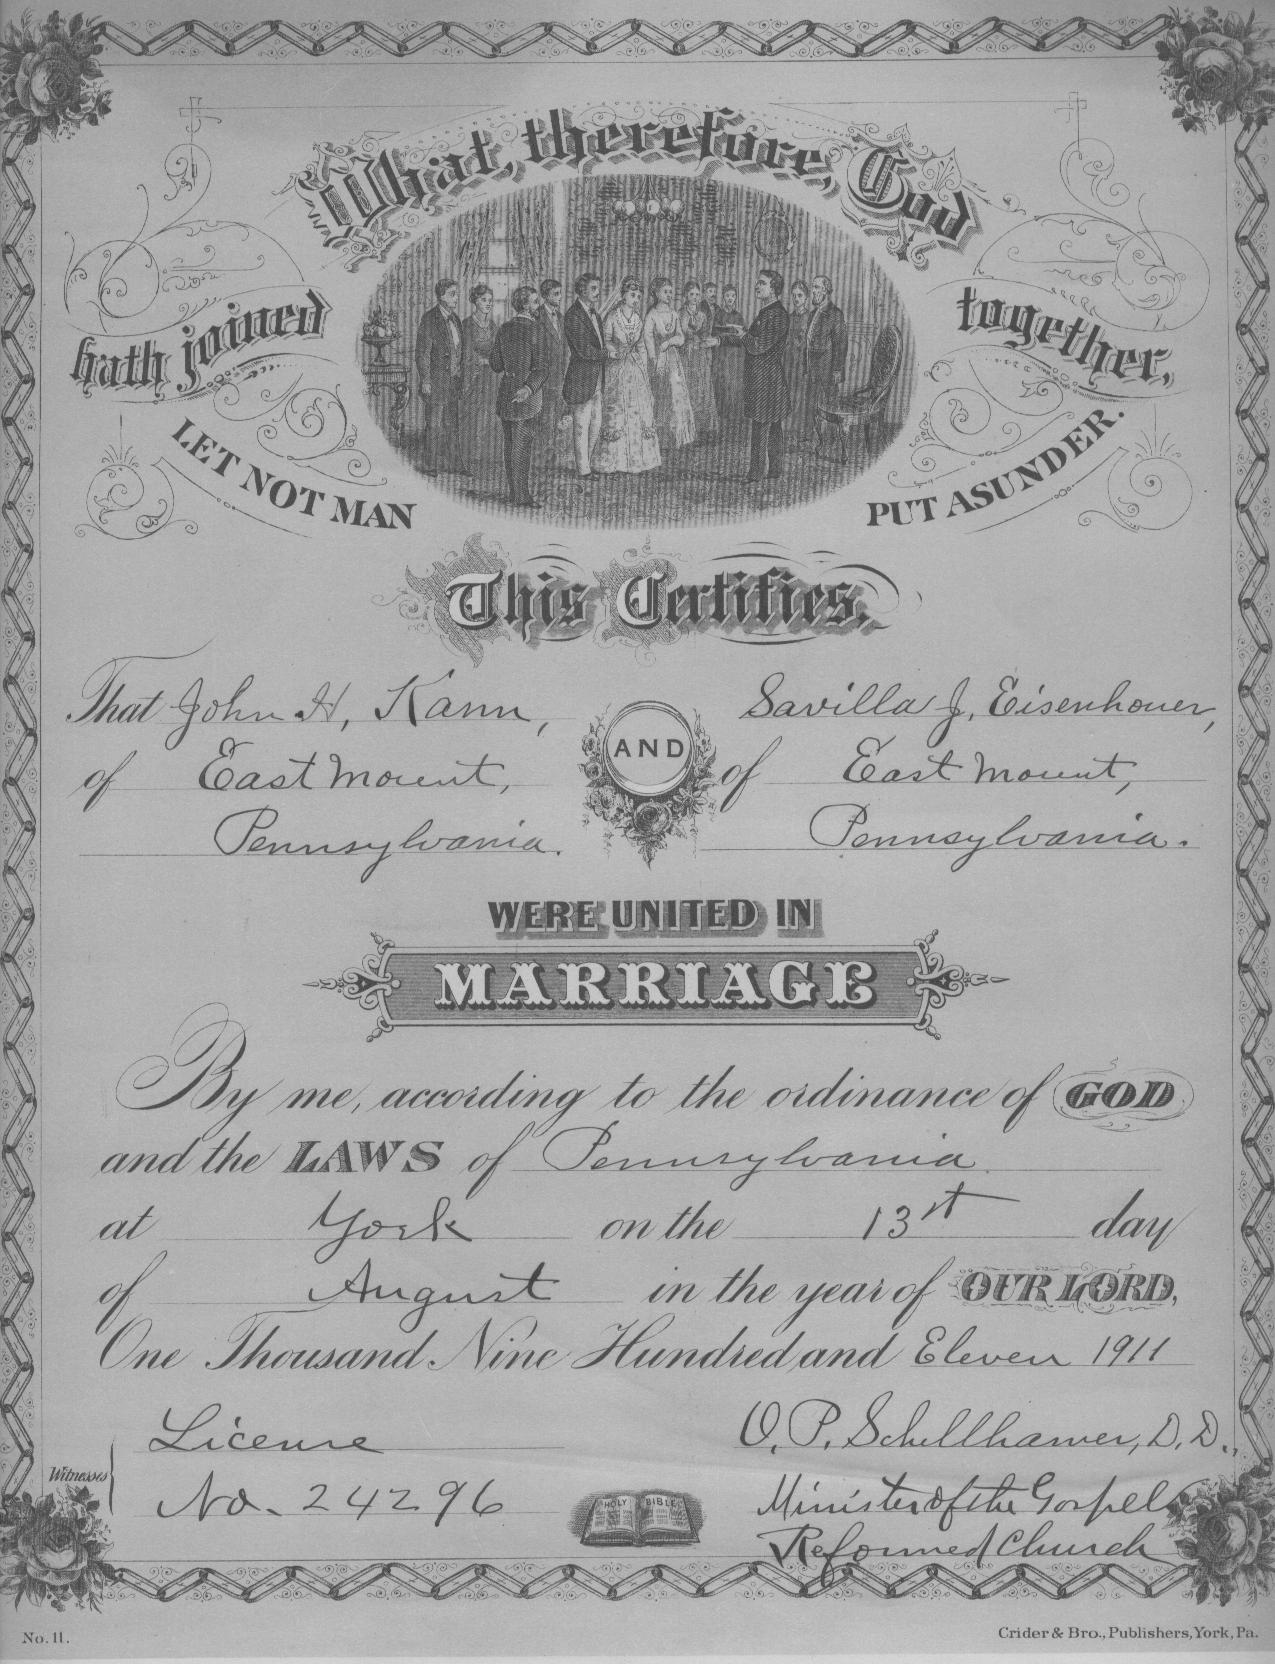 What, therefore, God
hath joined together,
LET NOT MAN PUT ASUNDER.
This Certifies,
That John H, Kann, AND Savilla J, Eisenhouer,
of East Mount, of East Mount,
Pennsylvania. Pennsylvania.
WERE UNITED IN
MARRIAGE
By me, according to the ordinance of GOD
and the LAWS of Pennsylvania
at York on the 13st day
of August in the year of OUR LORD,
One Thousand Nine Hundred and Eleven 1911
License O. P. Schellhamer, D. D.,
Witnesses
No. 24296 HOLY BIBLE Minister of the Gospel
Reformed Church
No. 11. Crider & Bro., Publishers, York, Pa.